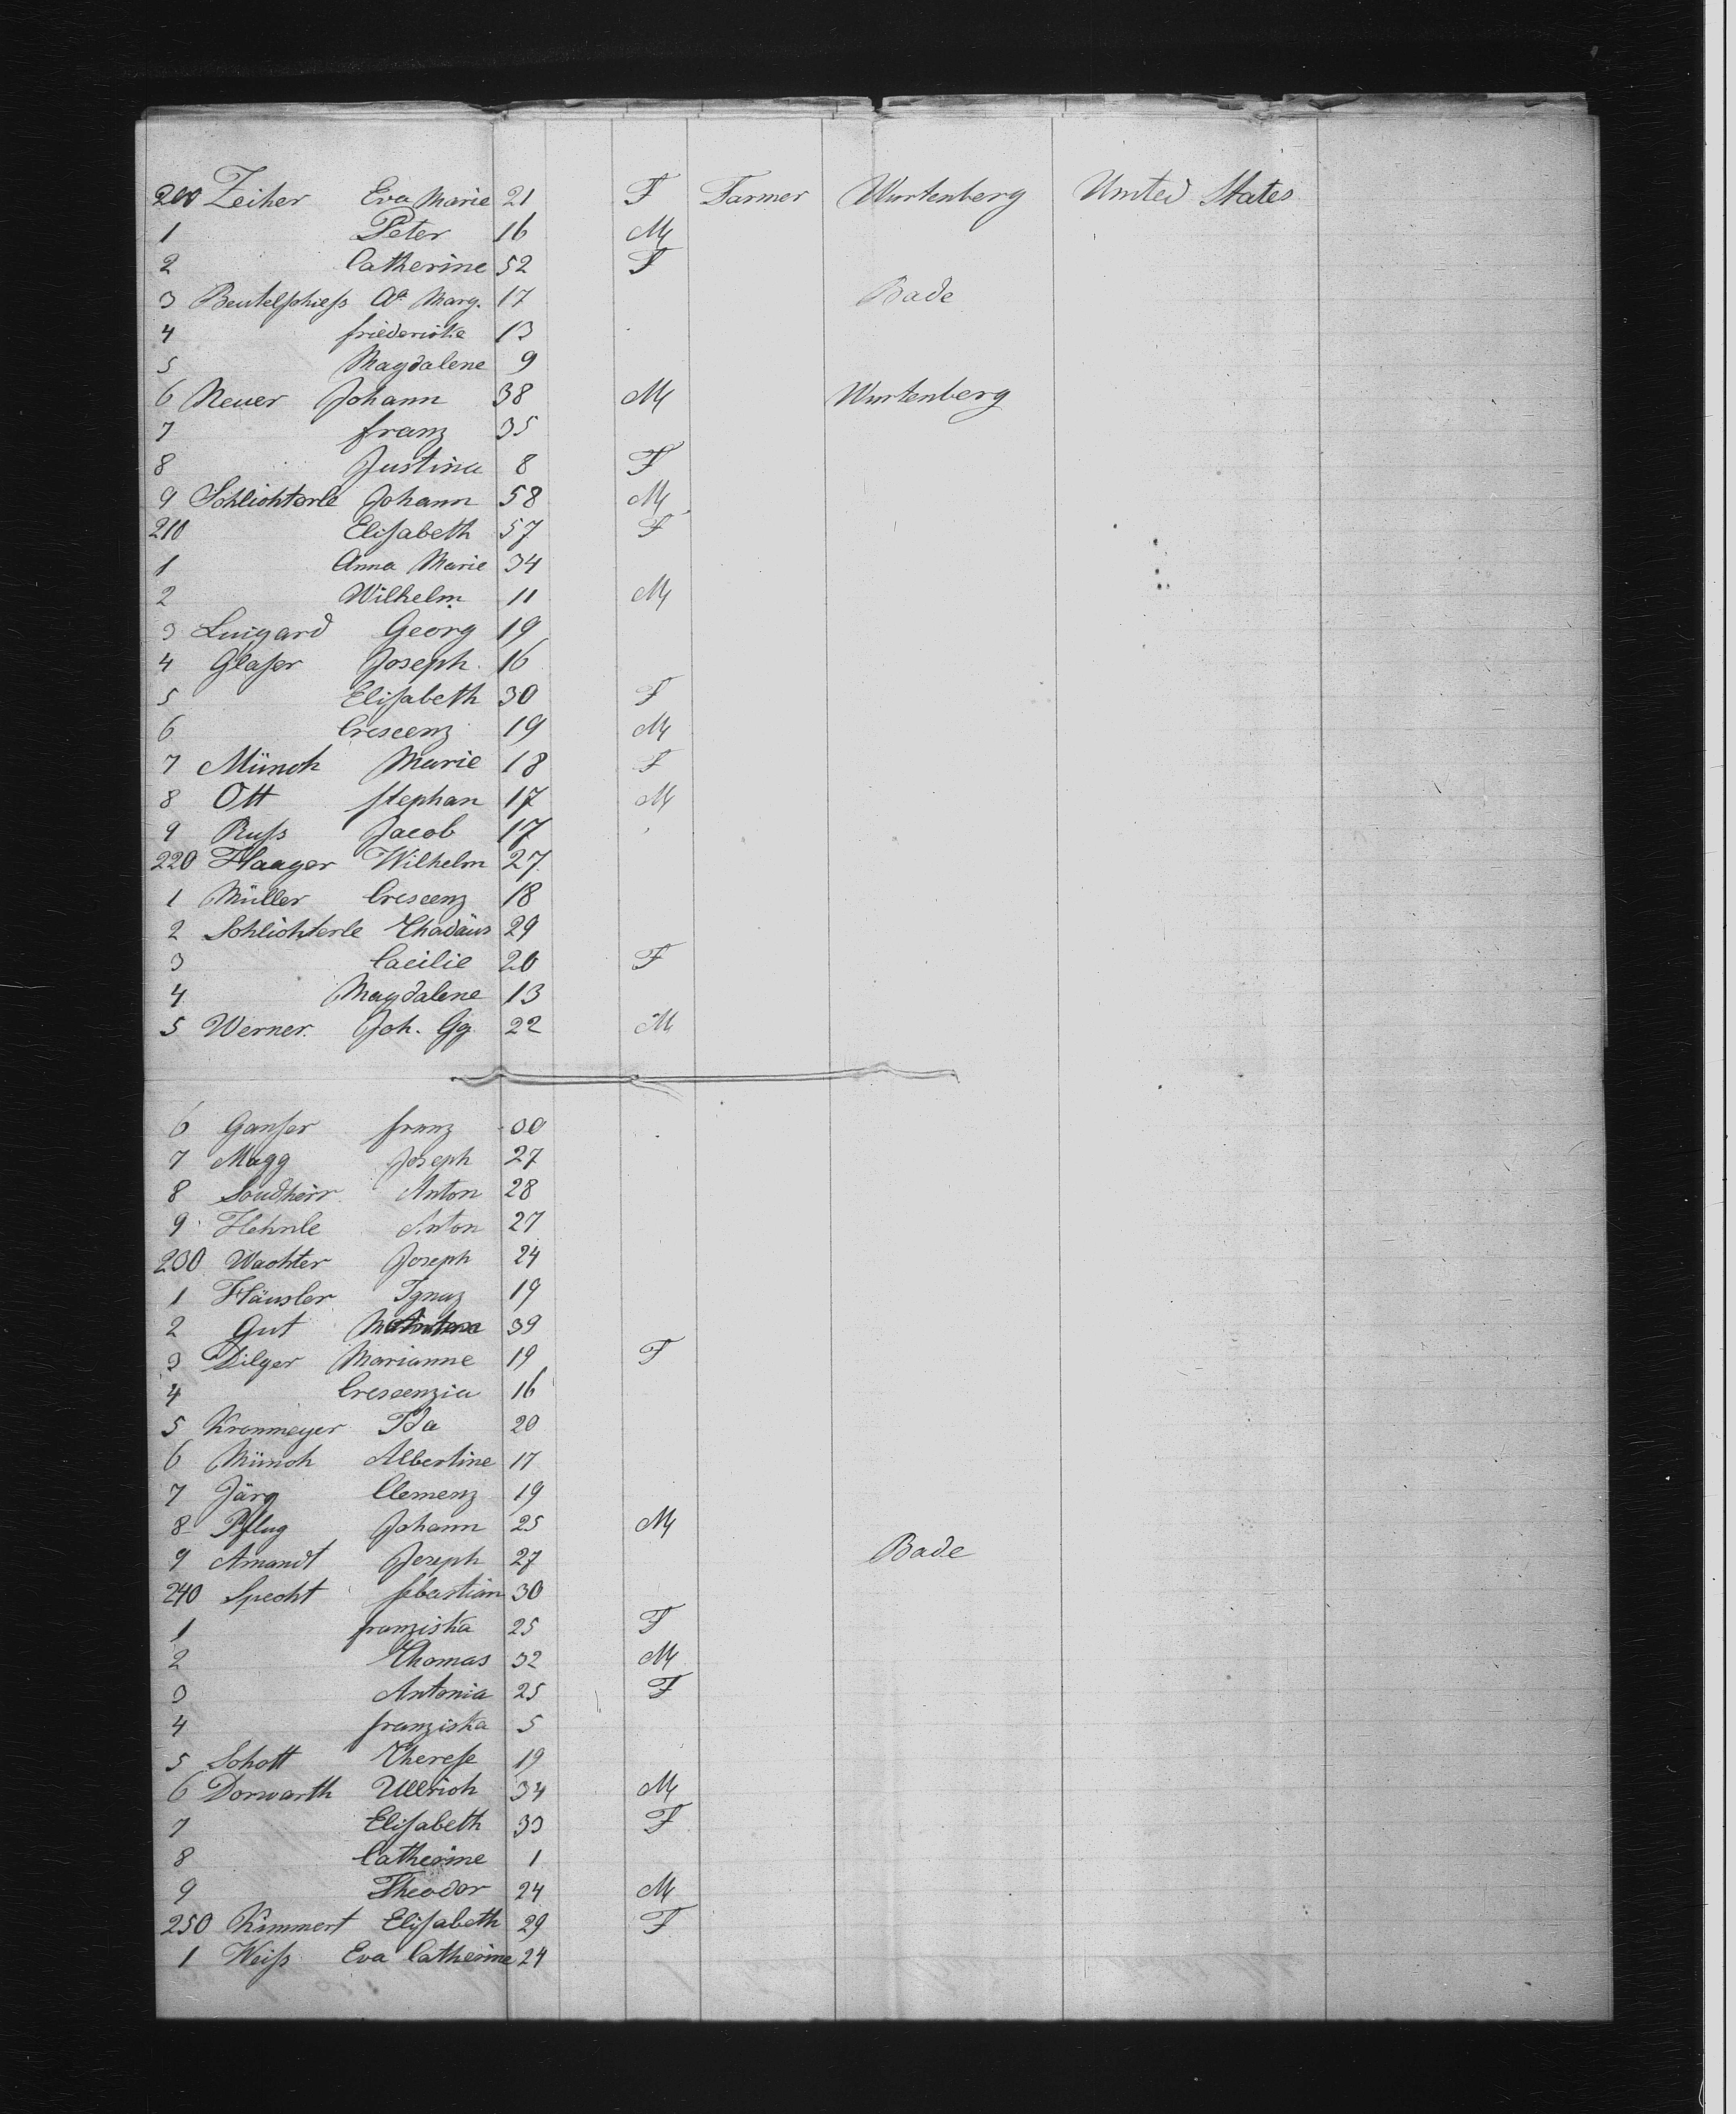 200 Zeiher Eva Marie 21 F Farmer Wurtenberg United States
1 Peter 16 M
2 Catherine 52 F
3 Beutelschiess Aa Marg. 17 Bade
4 friedericke 13
5 Magdalene 9
6 Neuer Johann 38 M Wurtenberg
7 franz 35
8 Justina 8 F
9 Schlichterle Johann 58 M
210 Elisabeth 57 F
1 Anna Marie 34
2 Wilhelm 11 M
3 Luigard Georg 19
4 Glaser Joseph 16
5 Elisabeth 30 F
6 Crescenz 19 M
7 Münch Marie 18 F
8 Ott stephan 17 M
9 Russ Jacob 17
220 Haager Wilhelm 27
1 Müller Crescenz 18
2 Schlichterle Thadäus 29
3 Cacilie 20 F
4 Magdalene 13
5 Werner Joh. Gg. 22 M
6 Ganser franz 30
7 Magg Joseph 27
8 Soudherr Anton 28
9 Hehnle Anton 27
230 Wachter Joseph 24
1 Häusler Ignaz 19
2 Gut 39
3 Dilger Marianne 19 F
4 Crescenzia 16
5 Kronmeyer Ida 20
6 Münch Albertine 17
7 Järg Clemenz 19
8 Pflug Johann 25 M
9 Amandt Joseph 27 Bade
240 Specht sebastian 30
1 franziska 25 F
2 Thomas 32 M
3 Antonia 25 F
4 franziska 5
5 Schott Therese 19
6 Dorwarth Ullrich 34 M
7 Elisabeth 33 F
8 Catherine 1
9 Theodor 24 M
250 Kimmert Elisabeth 29 F
1 Weiss Eva Catherine 24